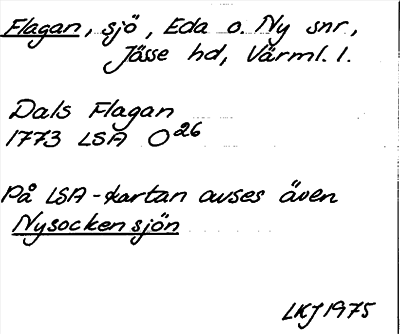 Flagan, sjö, Eda o. Ny snr,
Jösse hd, Värml. l.
Dals Flagan
1773 LSA O26
På LSA-kartan avses även
Nysockensjön
LKJ 1975